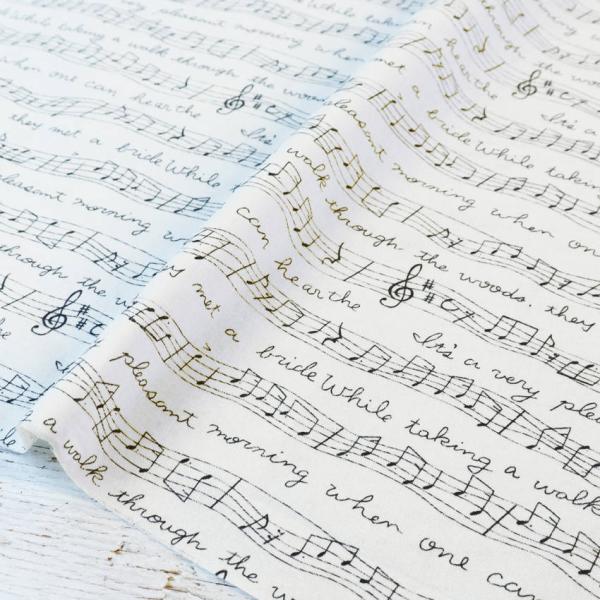 While taking a walk through the
when one can hear the
It's
they met a bride While
pleasant morning
through the
met a bride While takin
It's a
pleasant morning when on
walk through the woods. they
can hear the It's a very plea
met a bride While taking a walk
pleasant morning when one can
a walk through the w